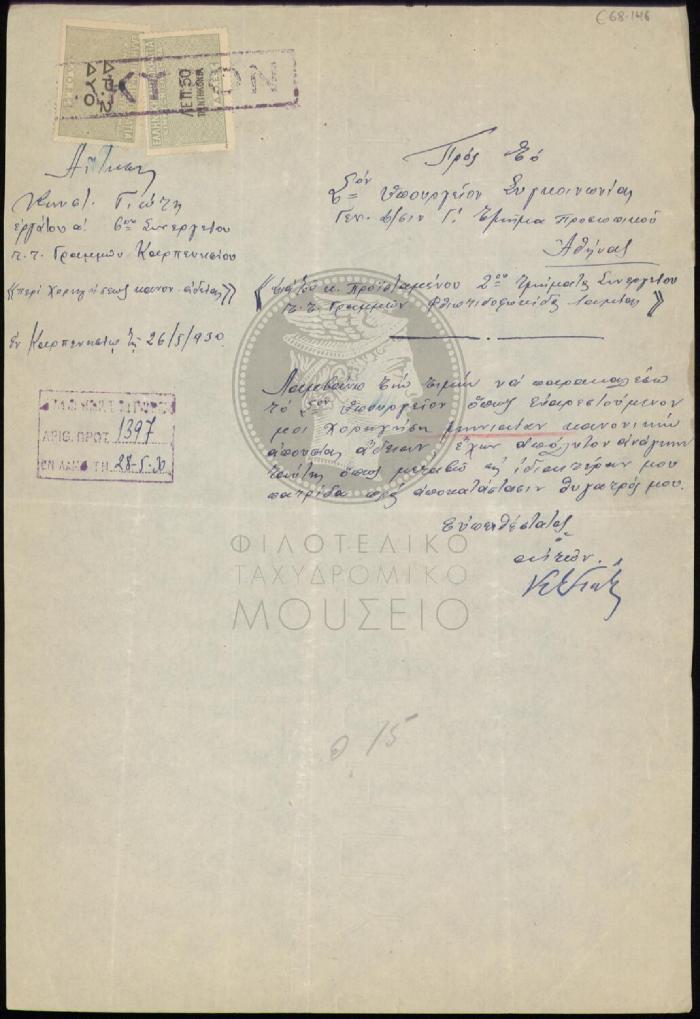 C68.146
ΔΡ. 2
ΔΥΟ
ΛΕΠ. 50
ΠΕΝΤΗΚΟΝΤΑ
Αίτησις
Κωνστ. Γιώτη
εργάτου α' 6ου Συνεργείου
τ.τ. Γραμμών Καρπενησίου
«περί χορηγήσεως κανον. αδείας»
Εν Καρπενησίω τη 26/5/930
ΑΡΙΘ. ΠΡΩΤ. 1397
ΕΝ ΛΑΜΙΑ ΤΗ 28-5-30
Προς το
Σον Υπουργείον Συγκοινωνίας
Γεν. Δ/σιν Γ' Τμήμα Προσωπικού
Αθήνας
«διά του κ. προϊσταμένου 2ου Τμήματος Συνεργείου
τ.τ. Γραμμών Φθιωτιδοφωκίδος Λαμίαν»
Λαμβάνω την τιμήν να παρακαλέσω
το Σον Υπουργείον όπως ευαρεστούμενον
μοι χορηγήση μηνιαίαν κανονικήν
απουσίας άδειαν έχων απόλυτον ανάγκην
ταύτης όπως μεταβώ εις ιδιαιτέραν μου
πατρίδα προς αποκατάστασιν θυγατρός μου.
Ευπειθέστατος
ο
αιτών.
ΦΙΛΟΤΕΛΙΚΟ
ΤΑΧΥΔΡΟΜΙΚΟ
ΜΟΥΣΕΙΟ